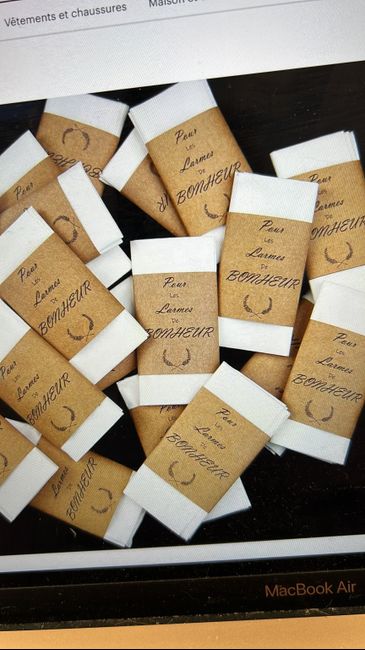 Vêtements et chaussures
Maison et
Pour
LES
Larmes
DE
BONHEUR
Pour
LES
Larmes
DE
BONHEUR
Pour
LES
Larmes
DE
BONHEUR
Pour
LES
Larmes
DE
BONHEUR
Pour
LES
Larmes
DE
BONHEUR
Pour
LES
Larmes
DE
BONHEUR
Pour
LES
Larmes
DE
BONHEUR
Pour
LES
Larmes
DE
BONHEUR
Larmes
DE
BONHEUR
MacBook Air